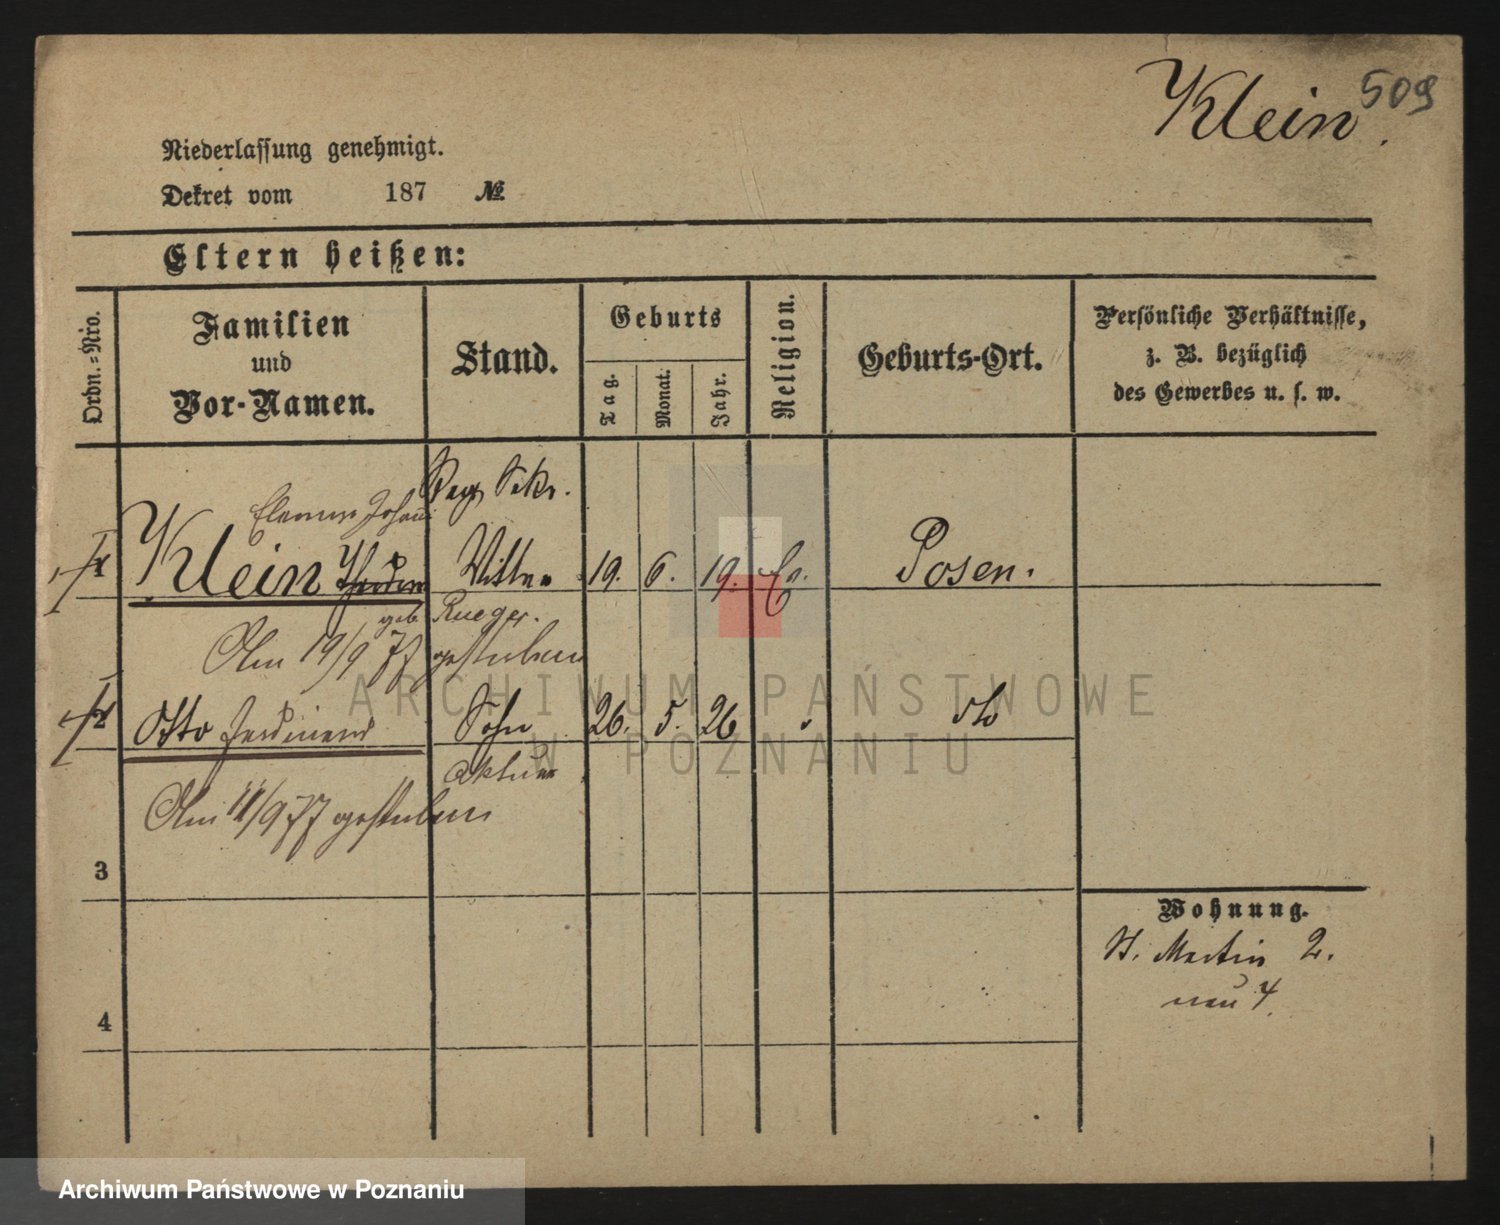 509
Klein.
Niederlassung genehmigt.
Dekret vom 187 №
Eltern heißen:
Ordn.-Nro.
Familien
und
Vor-Namen.
Stand.
Geburts
Tag.
Monat.
Jahr.
Religion.
Geburts-Ort.
Persönliche Verhältnisse,
z. B. bezüglich
des Gewerbes u. s. w.
Reg. Sekr.
1 Klein Wittwe 19. 6. 19. Ev. Posen.
geb. Rueger.
Am 19/9 77 gestorben
2 Otto Ferdinand Sohn 26. 5. 26 dto
Aktuar
Am 11/9 77 gestorben
3
4
Wohnung.
St. Martin 2.
neu 4.
ARCHIWUM PAŃSTWOWE
W POZNANIU
Archiwum Państwowe w Poznaniu